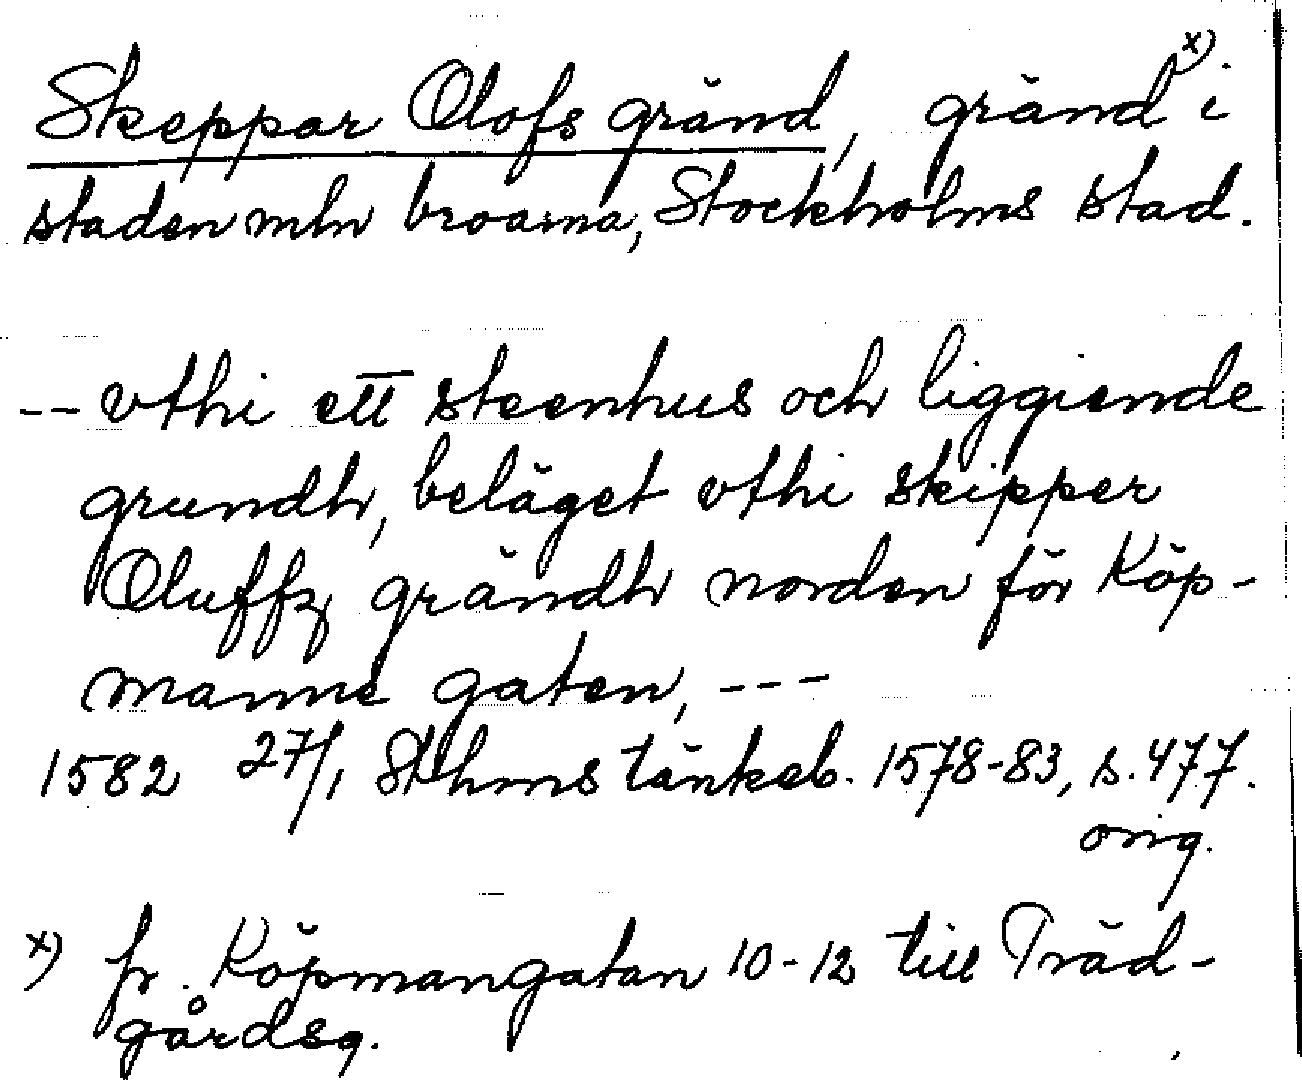 Skeppar Olofs gränd, gränd x) i
staden mln broarna, Stockholms stad.
-- vthi ett steenhus och liggiende
grundh, beläget vthi skipper
Oluffz grändh norden för Köp-
manne gaten, ---
1582 27/1 Sthms tänkeb. 1578-83, s. 477.
orig.
x) fr. Köpmangatan 10-12 till Träd-
gårdsg.